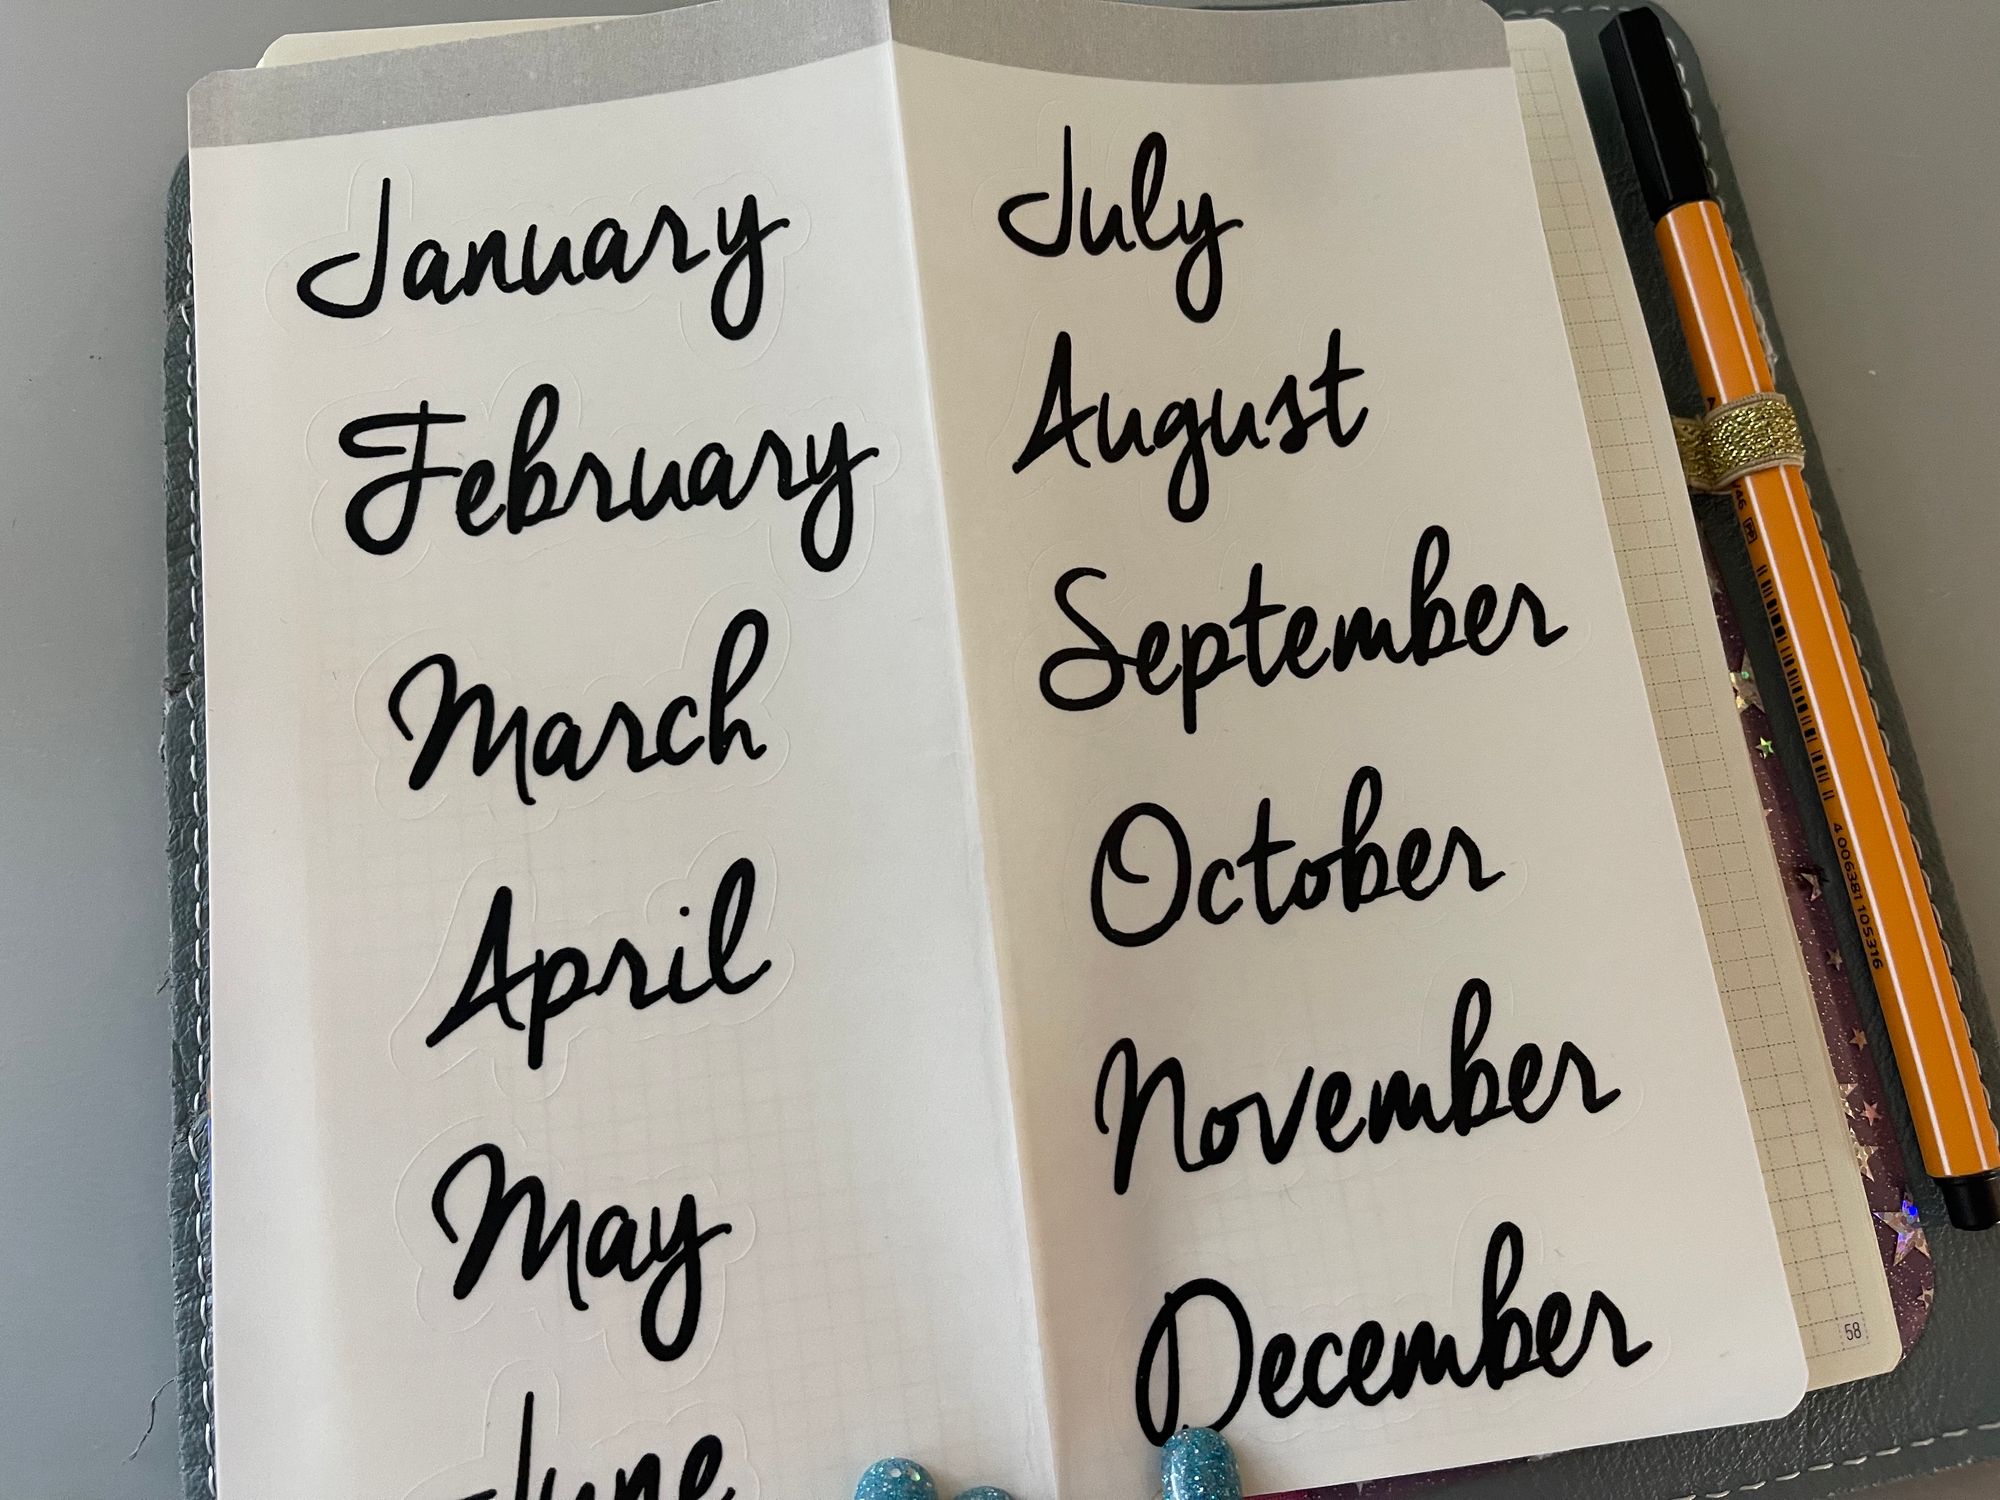 January
February
March
April
May
June
July
August
September
October
November
December
/46 PP
4 006381 105316
58